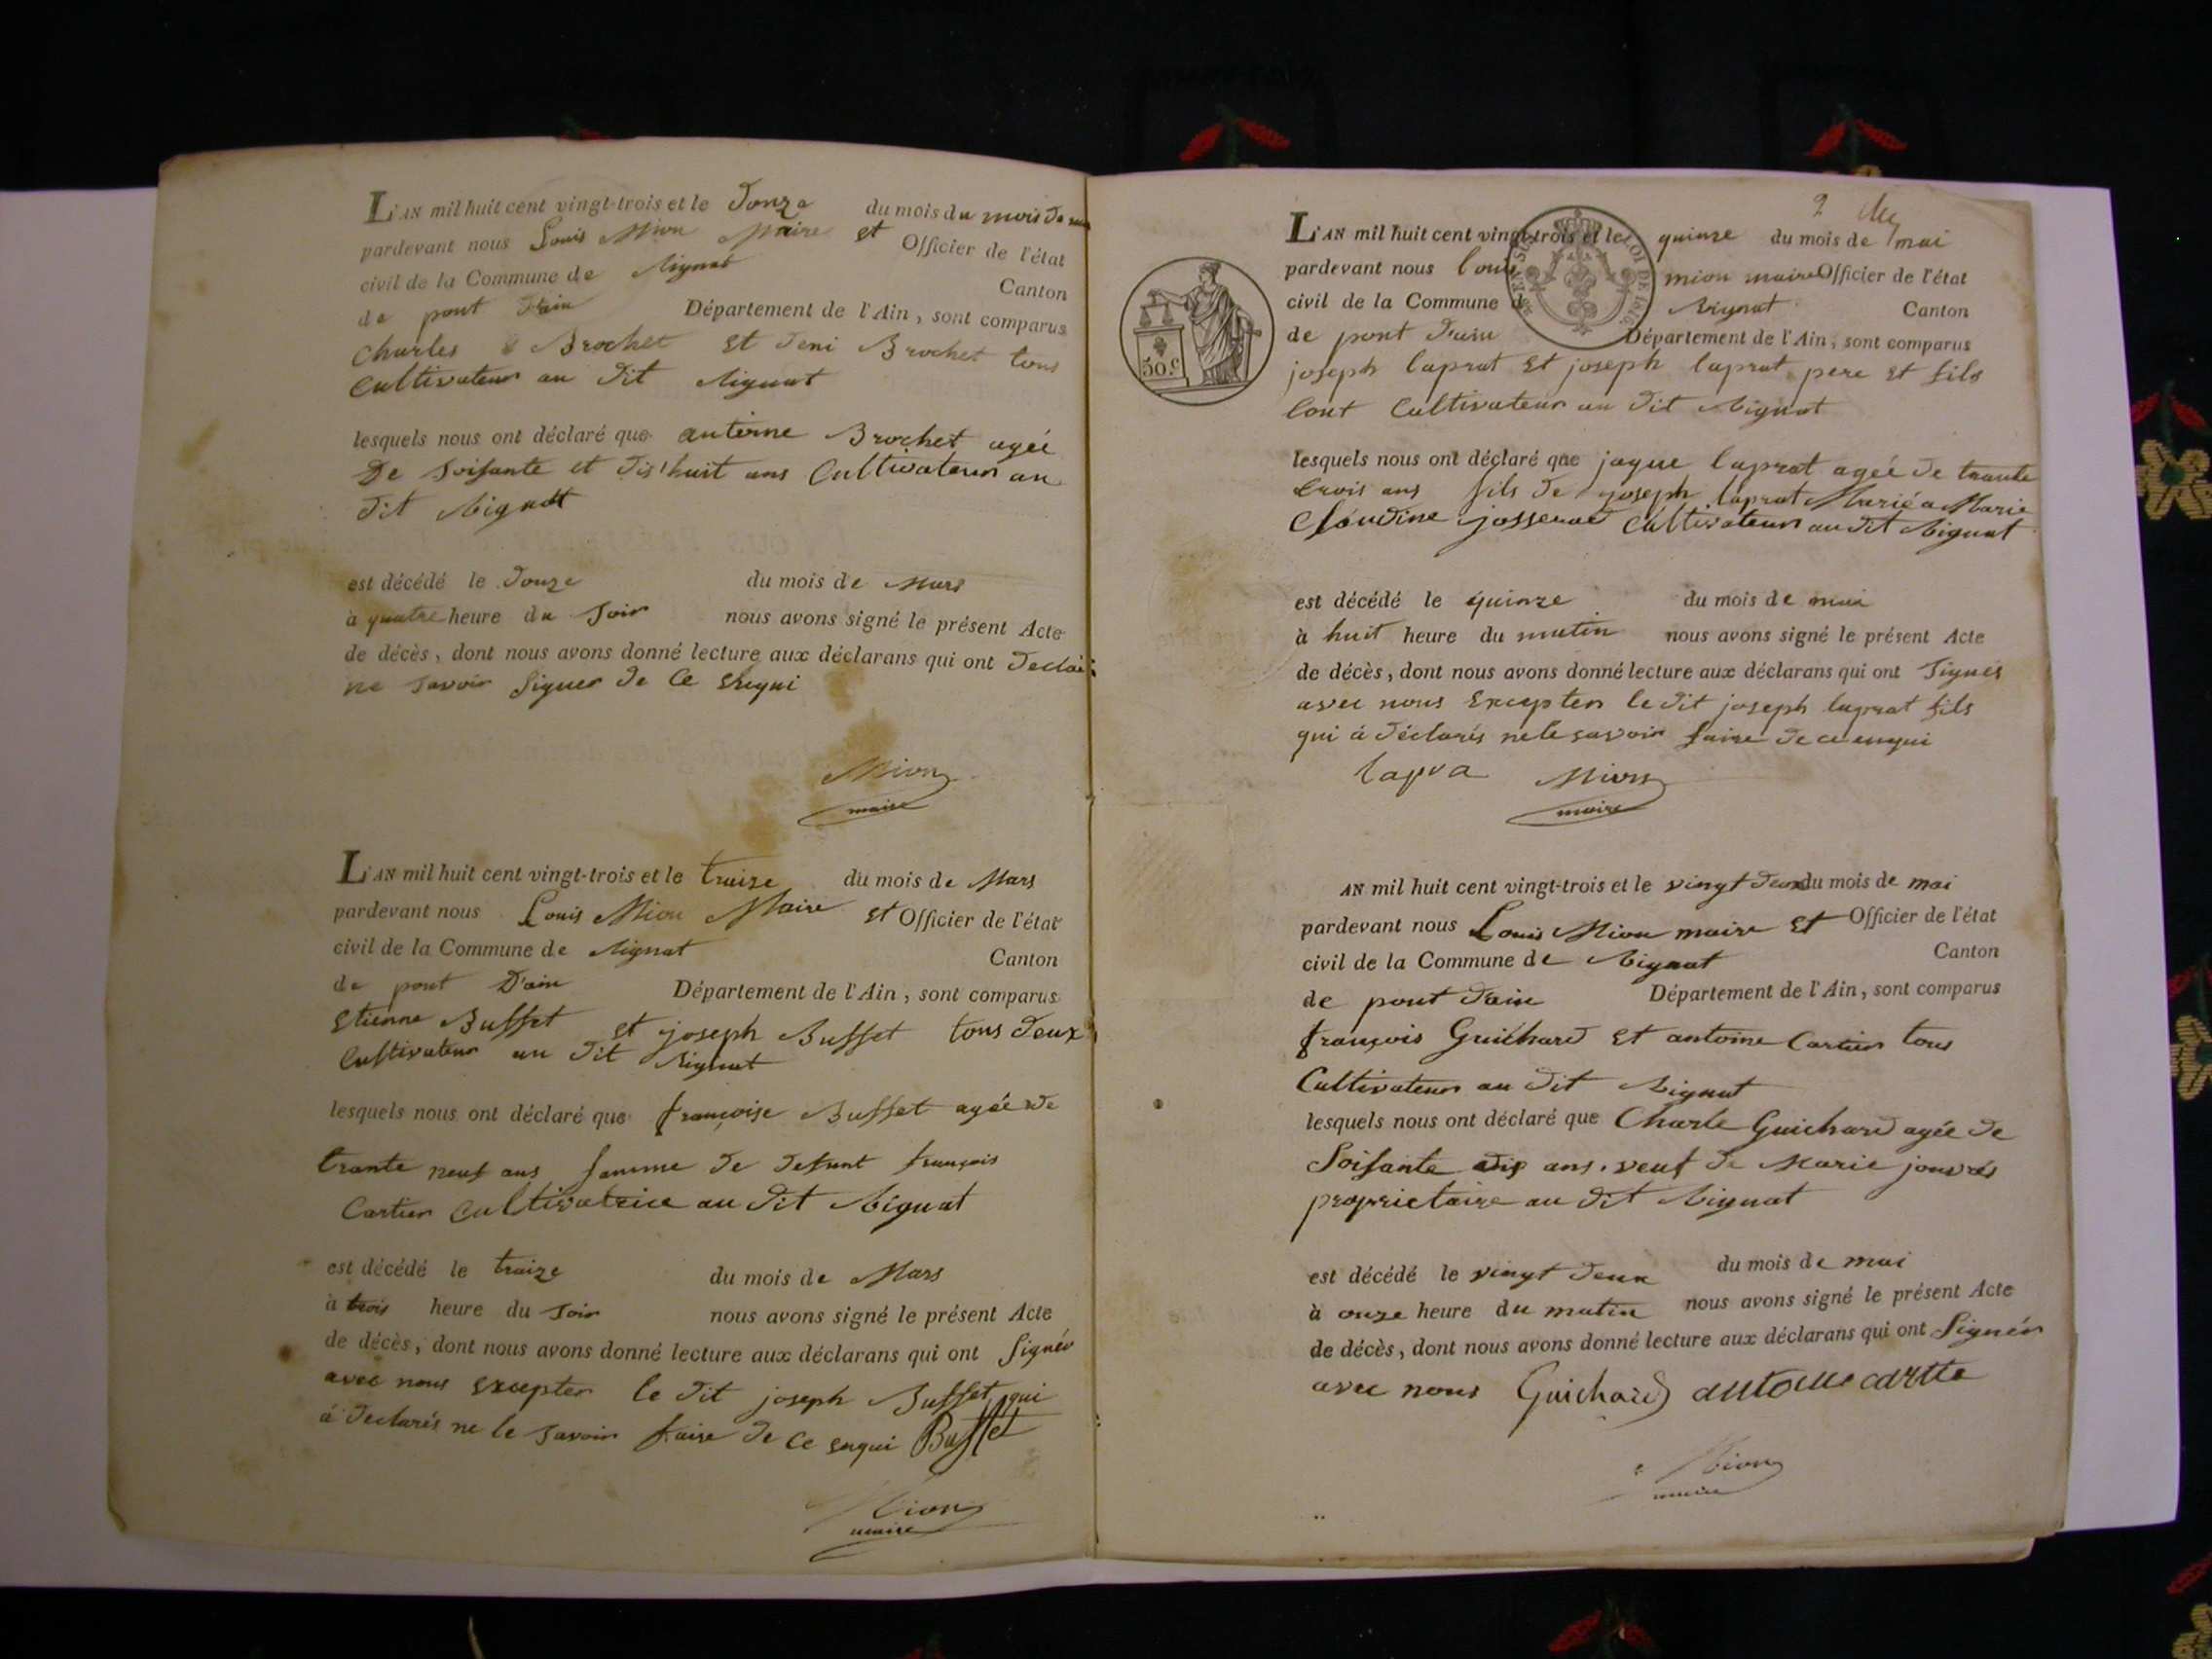 L'AN mil huit cent vingt-trois et le Douze du mois du mois de
pardevant nous Louis Mion Maire et Officier de l'état
civil de la Commune de Rignat Canton
de pont Dain Département de l'Ain, sont comparus
Charles Brochet et Deni Brochet tous
Cultivateur au Dit Rignat
lesquels nous ont déclaré que antoine Brochet agéé
De Soisante et Dis'huit ans Cultivateur au
Dit Rignat
est décédé le Douze du mois de Mars
à quatre heure du Soir nous avons signé le présent Acte
de décès, dont nous avons donné lecture aux déclarans qui ont Declaré
ne Savoir Signer De Ce Enqui
Mion
maire
L'AN mil huit cent vingt-trois et le traize du mois de Mars
pardevant nous Louis Mion Maire et Officier de l'état
civil de la Commune de Rignat Canton
de pont D'ain Département de l'Ain, sont comparus
Etienne Buffet et joseph Buffet tous Deux
Cultivateur au Dit Rignat
lesquels nous ont déclaré que françoise Buffet agéé De
trante neuf ans famme De Defunt françois
Cartier Cultivatrice au Dit Rignat
est décédé le traize du mois de Mars
à trois heure du Soir nous avons signé le présent Acte
de décès, dont nous avons donné lecture aux déclarans qui ont Signés
avec nous Excepter le Dit joseph Buffet qui
á Declarés ne le Savoir faire De Ce Enqui Buffet
Mion
maire
2
L'AN mil huit cent vingt-trois et le quinze du mois de mai
pardevant nous louis mion maire Officier de l'état
civil de la Commune de Rignat Canton
de pont Dain Département de l'Ain, sont comparus
LOI DE 1816
50 c
joseph laprat Et joseph laprat pere Et fils
tout Cultivateur au Dit Rignat
lesquels nous ont déclaré que jaque laprat agéé De trante
trois ans fils De joseph laprat Marié a Marie
Cloudine josserand Cultivateur au Dit Rignat
est décédé le quinze du mois de mai
à huit heure du matin nous avons signé le présent Acte
de décès, dont nous avons donné lecture aux déclarans qui ont Signés
avec nous Excepter le Dit joseph laprat fils
qui á Déclarés ne le savoir faire De ce enqui
lapra Mion
maire
AN mil huit cent vingt-trois et le vingt Deux du mois de mai
pardevant nous Louis Mion maire Et Officier de l'état
civil de la Commune de Rignat Canton
de pont Dain Département de l'Ain, sont comparus
françois Guichard Et antoine Cartier tous
Cultivateur au Dit Rignat
lesquels nous ont déclaré que Charle Guichard agée De
Soisante Dix ans. veuf De Marie
proprietaire au Dit Rignat
est décédé le vingt Deux du mois de mai
à onze heure du matin nous avons signé le présent Acte
de décès, dont nous avons donné lecture aux déclarans qui ont Signés
avec nous Guichard
Mion
maire